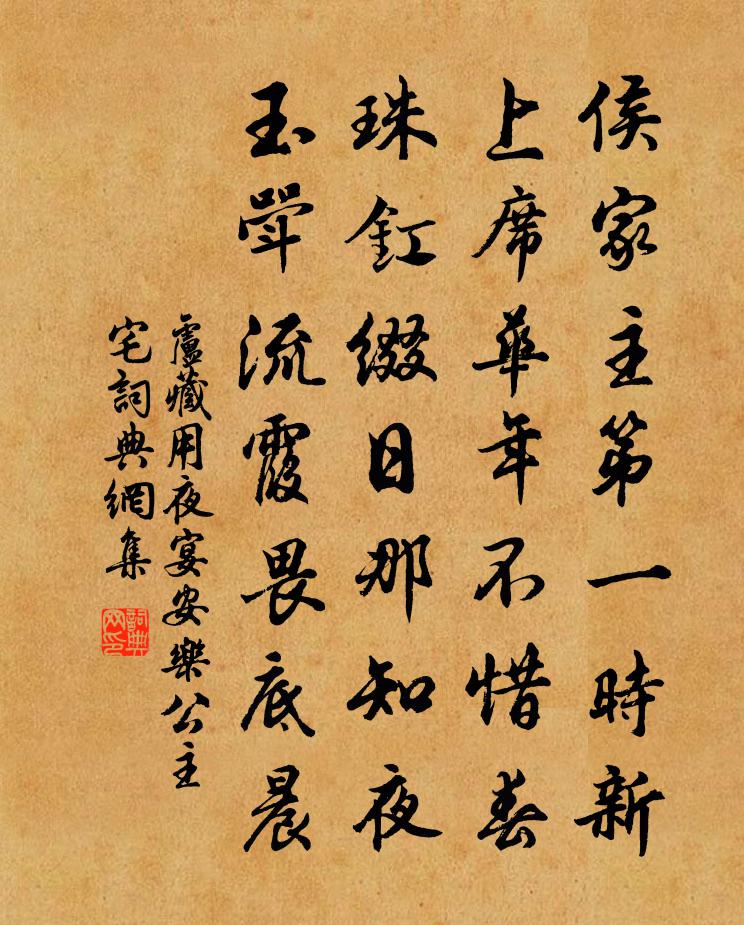 侯家主第一時新
上席華年不惜春
珠釭綴日那知夜
玉斝流霞畏底晨
盧藏用夜宴安樂公主
宅詞典網集
詞典網印